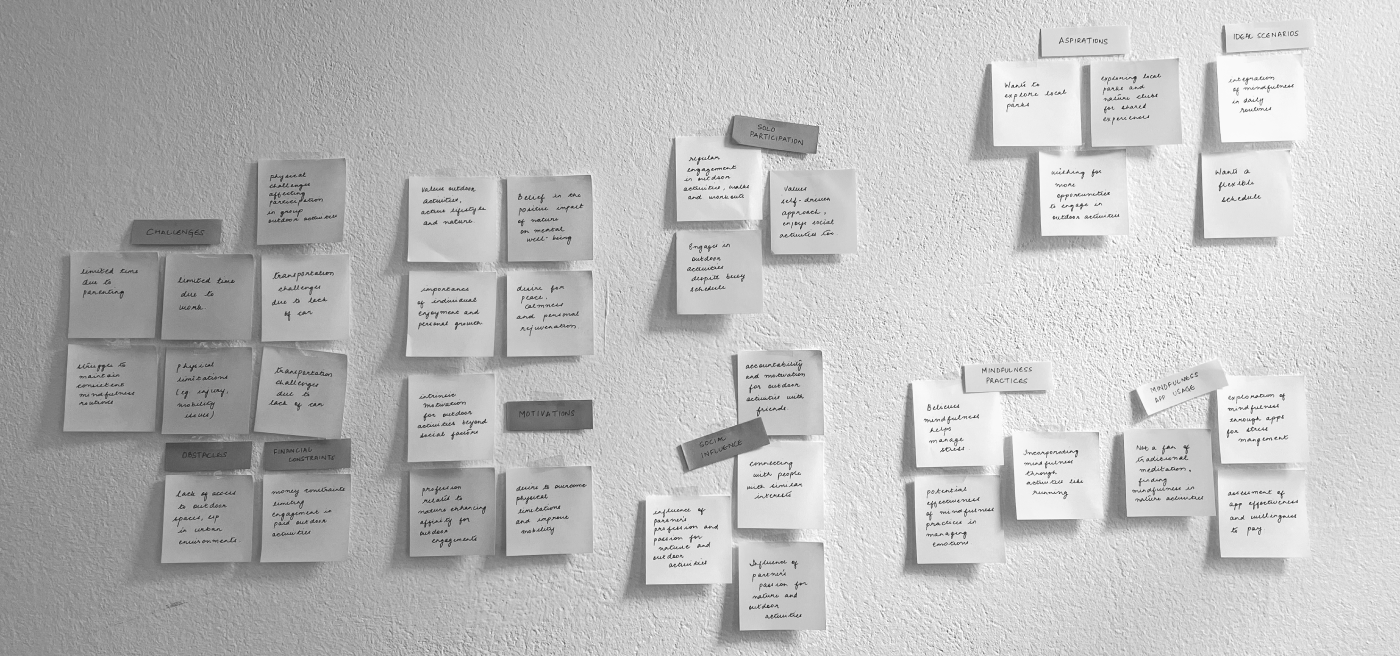 CHALLENGES
physical
challenges
affecting
participation
in group
outdoor activities
limited time
due to
parenting
limited time
due to
work
transportation
challenges
due to lack
of car
struggle to
maintain
consistent
mindfulness
routines
physical
limitations
(eg. injury,
mobility
issues)
transportation
challenges
due to
lack of car
OBSTACLES
lack of access
to outdoor
spaces, esp
in urban
environments
FINANCIAL
CONSTRAINTS
money constraints
limiting
engagement in
paid outdoor
activities
Values outdoor
activities,
active lifestyle
and nature
Belief in the
positive impact
of nature
on mental
well-being
importance
of individual
enjoyment and
personal growth
desire for
peace,
calmness
and personal
rejuvenation
intrinsic
motivation
for outdoor
activities beyond
social factors
MOTIVATIONS
profession
related to
nature enhancing
affinity for
outdoor
engagements
desire to overcome
physical
limitations
and improve
mobility
SOLO
PARTICIPATION
regular
engagement
in outdoor
activities, walks
and workouts
Values
self-driven
approach,
enjoys social
activities too
Engages in
outdoor
activities
despite busy
schedule
SOCIAL
INFLUENCE
accountability
and motivation
for outdoor
activities with
friends
Connecting
with people
with similar
interests
influence of
partner's
profession and
passion for
nature and
outdoor
activities
Influence of
partner's
passion for
nature and
outdoor
activities
ASPIRATIONS
Wants to
explore local
parks
exploring local
parks and
nature clubs
for shared
experiences
wishing for
more
opportunities
to engage in
outdoor activities
IDEAL SCENARIOS
integration
of mindfulness
in daily
routines
Wants a
flexible
schedule
MINDFULNESS
PRACTICES
Believes
mindfulness
helps
manage
stress
Incorporating
mindfulness
through
activities like
running
potential
effectiveness
of mindfulness
practices in
managing
emotions
MINDFULNESS
APP USAGE
Not a fan of
traditional
meditation,
finding
mindfulness in
nature activities
exploration of
mindfulness
through apps
for stress
mangement
assessment of
app effectiveness
and willingness
to pay